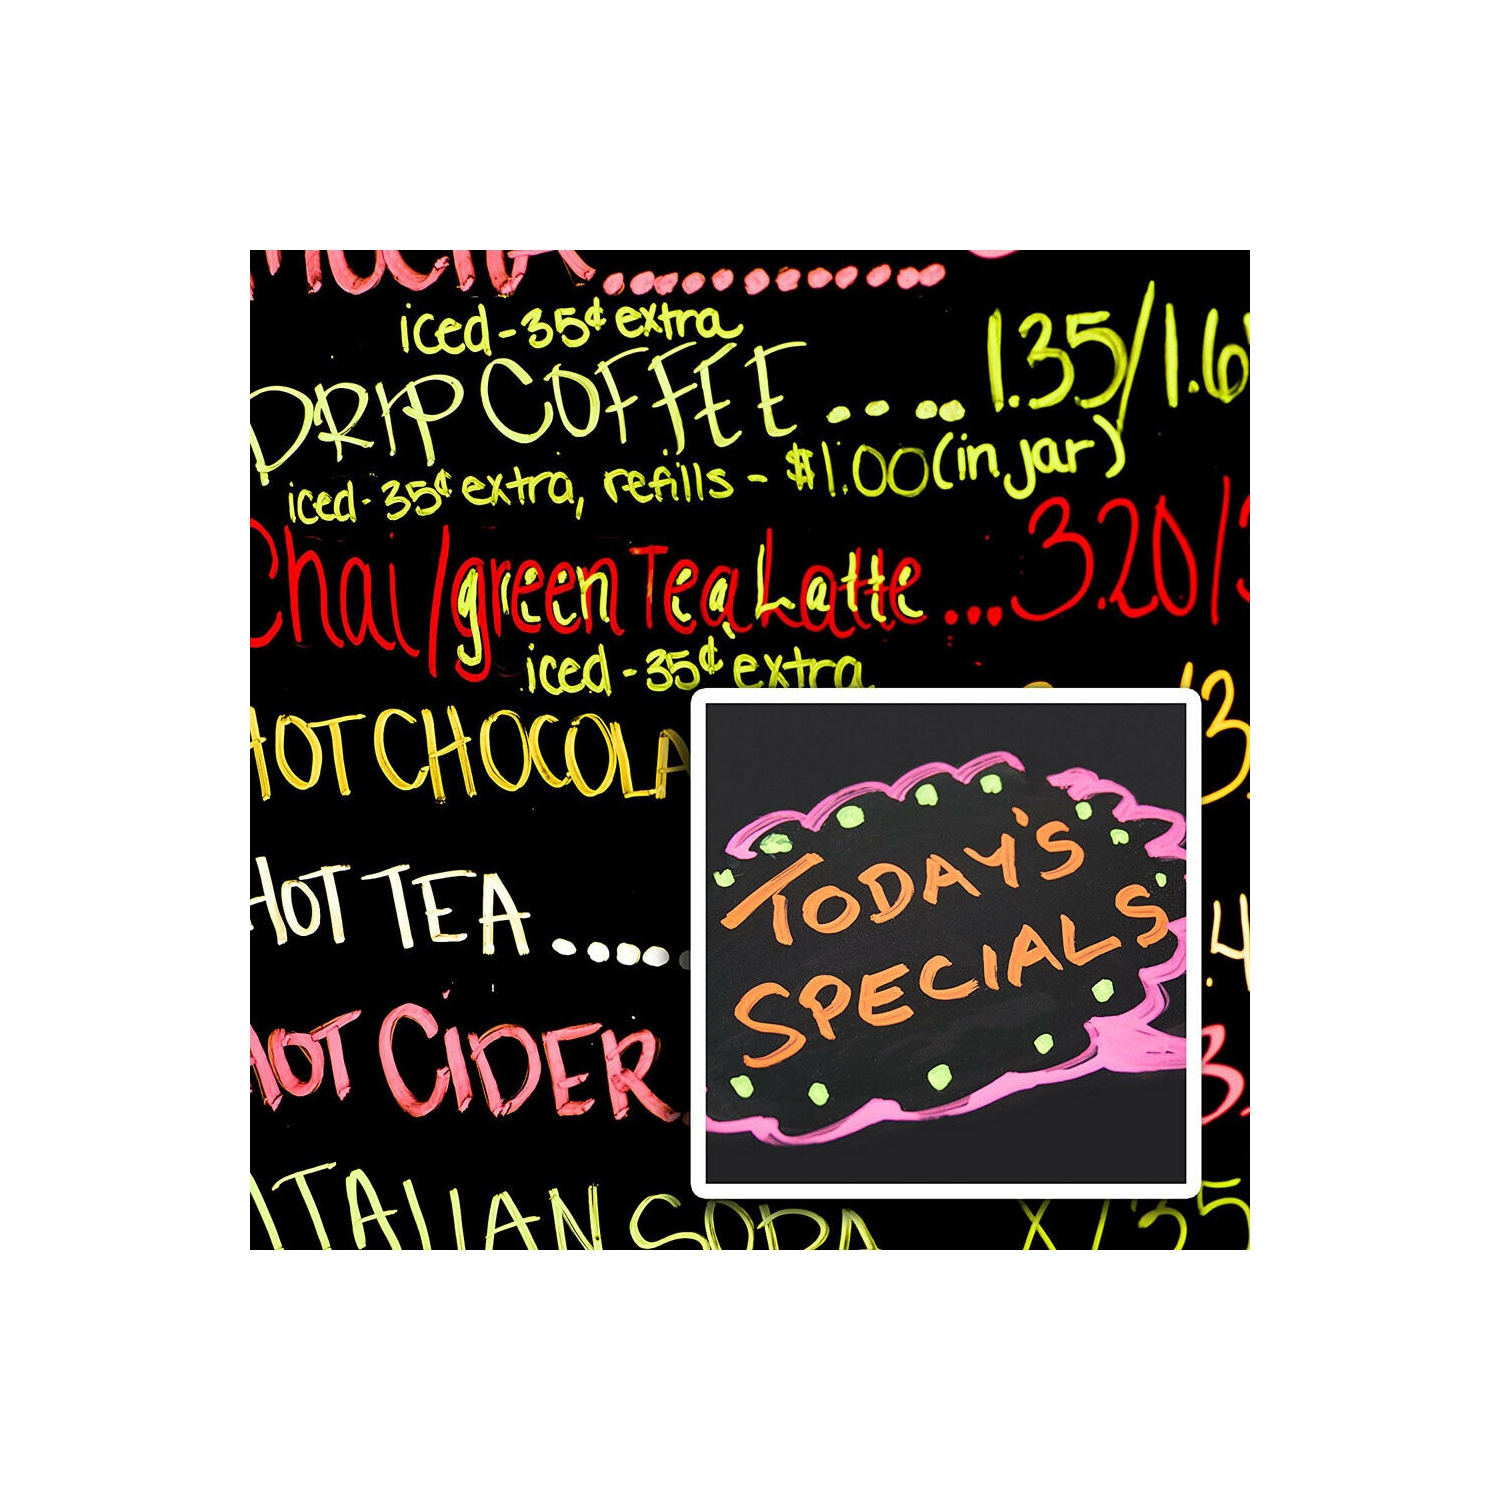 MOCHA..........
iced - 35¢ extra
DRIP COFFEE .... 1.35/1.6
iced - 35¢ extra, refills - $1.00 (in jar)
Chai/green Tea Latte ...3.20/3
iced - 35¢ extra
HOT CHOCOLA
HOT TEA .....
HOT CIDER
ITALIAN SODA
TODAY'S
SPECIALS